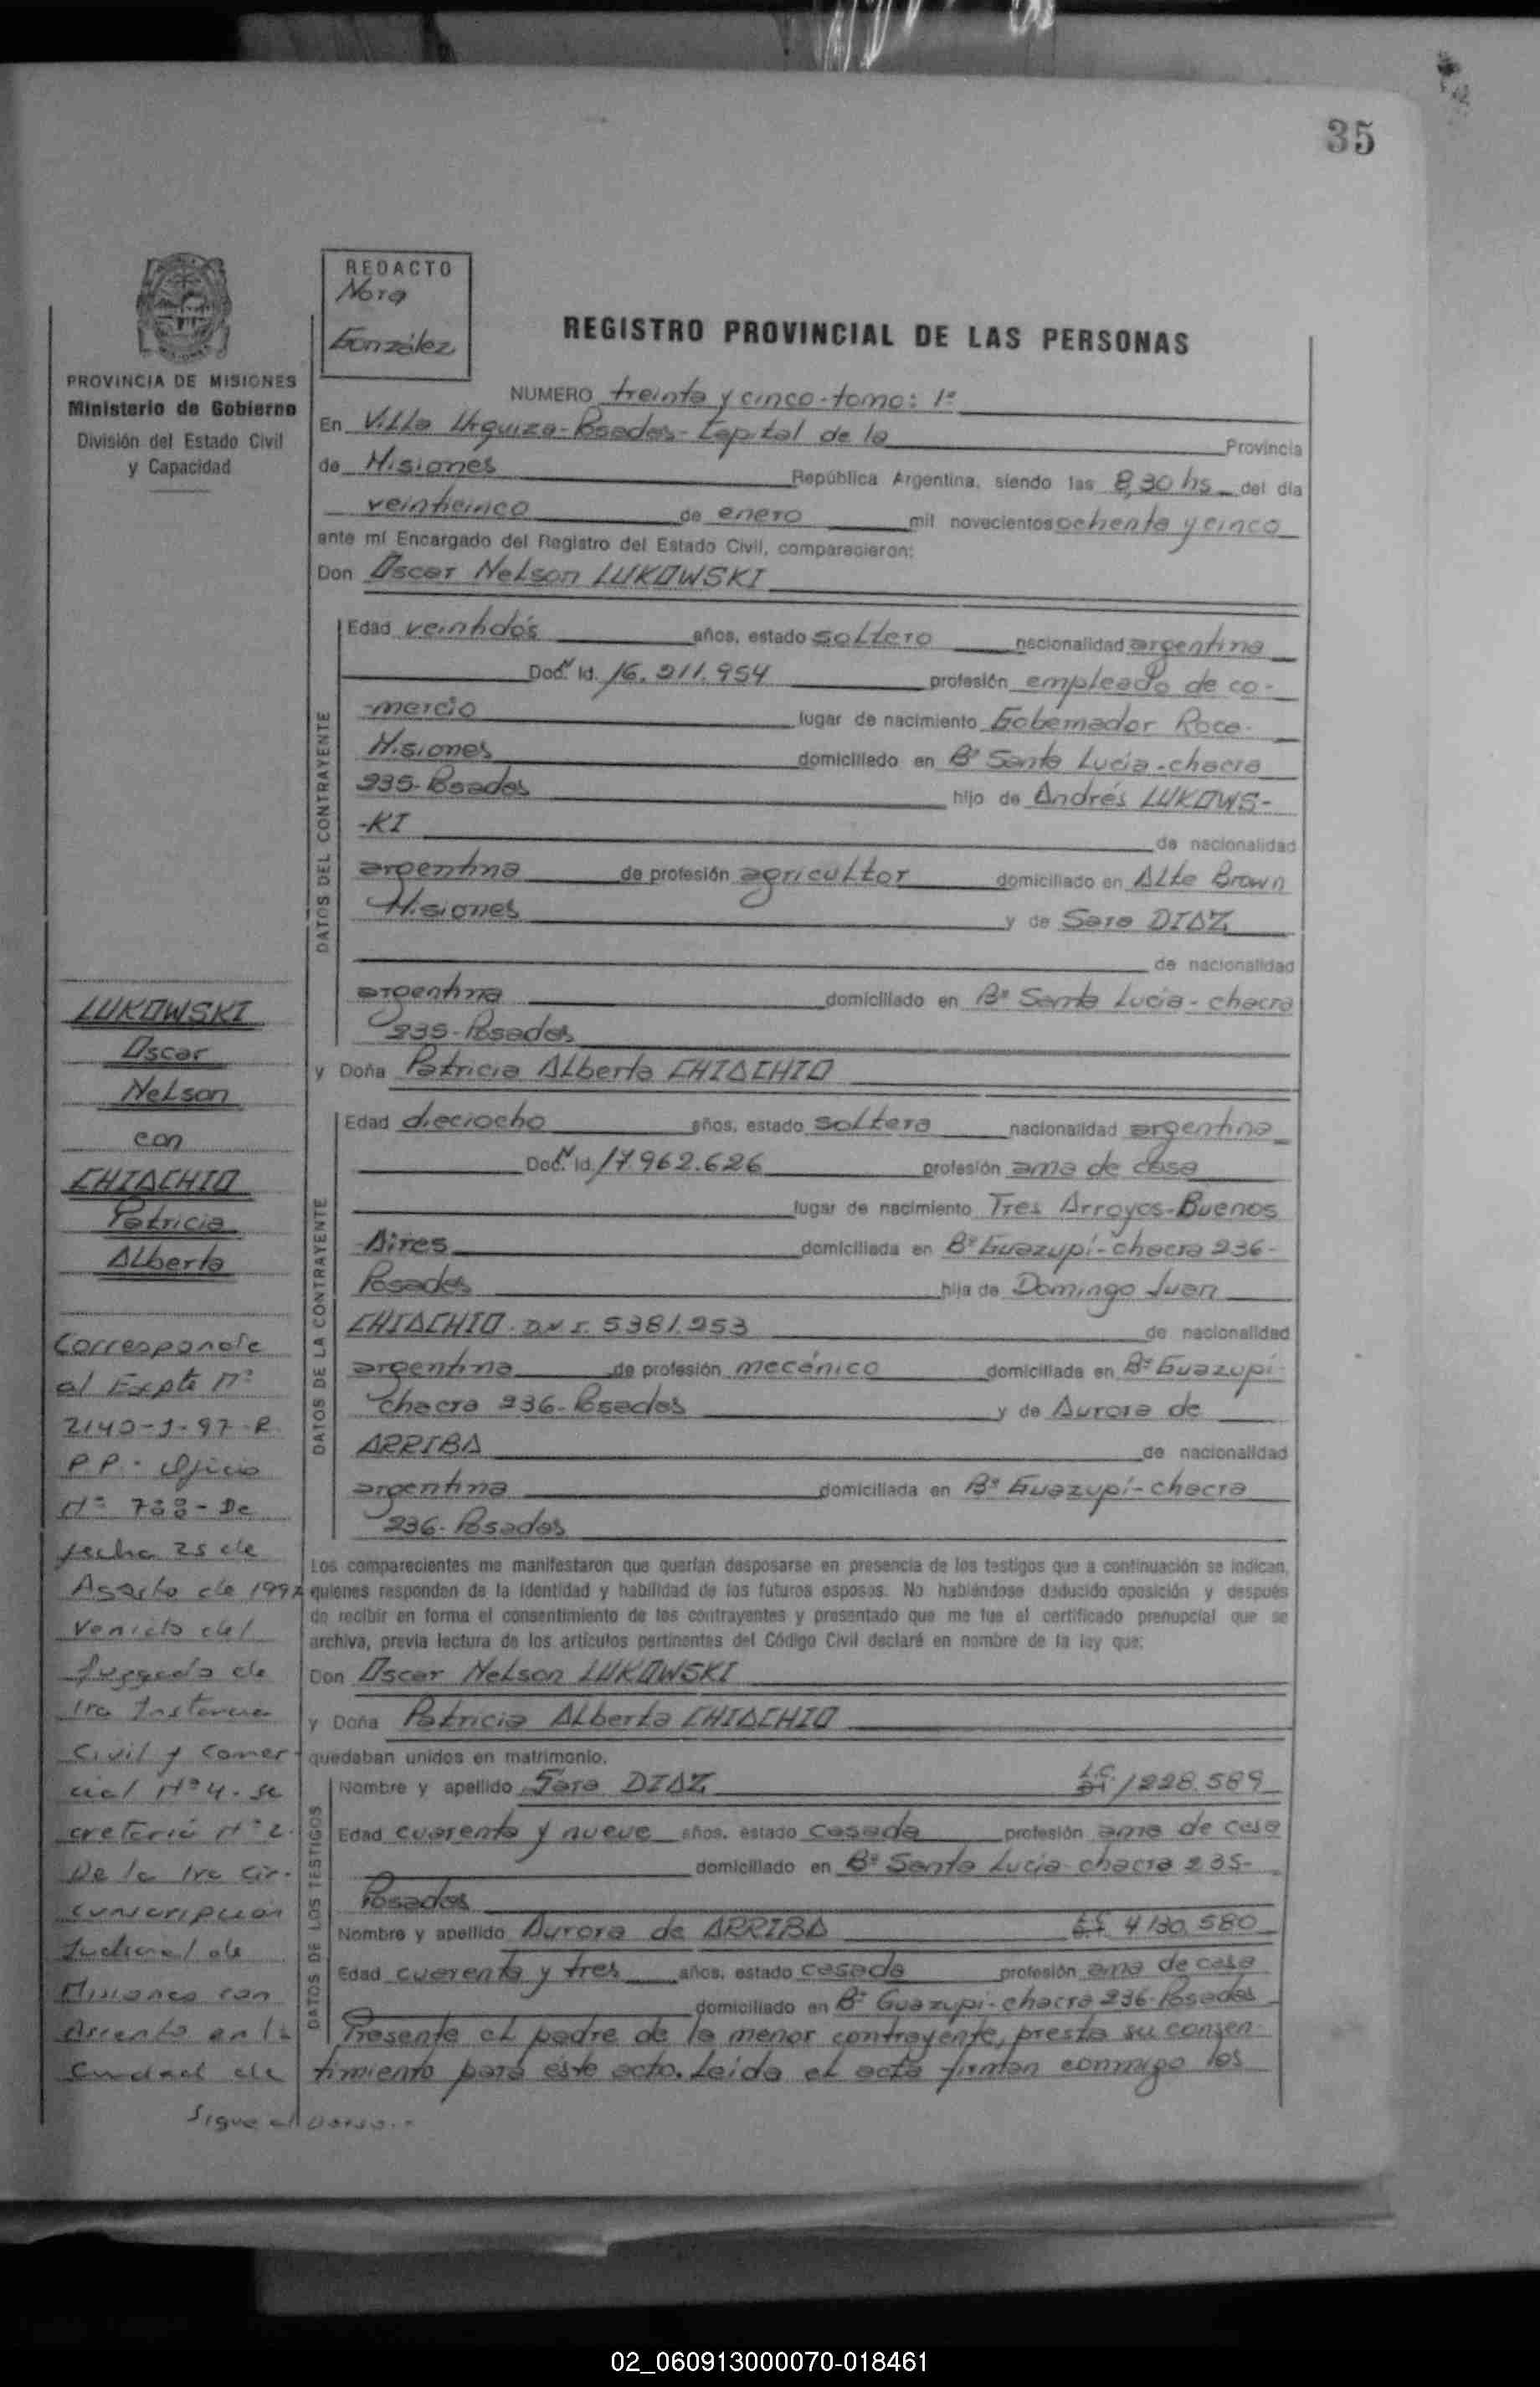 35
REDACTO
Nora
González
REGISTRO PROVINCIAL DE LAS PERSONAS
PROVINCIA DE MISIONES
Ministerio de Gobierno
División del Estado Civil
y Capacidad
NUMERO treinta y cinco-tomo: 1º
En Villa Urquiza-Posadas-Capital de la Provincia
de Misiones República Argentina, siendo las 8,30 hs del día
veinticinco de enero mil novecientos ochenta y cinco
ante mí Encargado del Registro del Estado Civil, comparecieron:
Don Oscar Nelson LUKOWSKI
DATOS DEL CONTRAYENTE
Edad veintidós años, estado soltero nacionalidad argentina
Doc. Id. 16.211.954 profesión empleado de co-
-mercio lugar de nacimiento Gobernador Roca-
Misiones domiciliado en Bº Santa Lucía-chacra
235-Posadas hijo de Andrés LUKOWS-
-KI de nacionalidad
argentina de profesión agricultor domiciliado en Alte Brown
Misiones y de Sara DIAZ
de nacionalidad
argentina domiciliado en Bº Santa Lucía-chacra
235-Posadas
y Doña Patricia Alberta CHIACHIO
DATOS DE LA CONTRAYENTE
Edad dieciocho años, estado soltera nacionalidad argentina
Doc. Id. 17.962.626 profesión ama de casa
lugar de nacimiento Tres Arroyos-Buenos
Aires domiciliada en Bº Guazupí-chacra 236-
Posadas hija de Domingo Juan
CHIACHIO. D.N.I. 5381.253 de nacionalidad
argentina de profesión mecánico domiciliada en Bº Guazupí-
chacra 236-Posadas y de Aurora de
ARRIBA de nacionalidad
argentina domiciliada en Bº Guazupí-chacra
236-Posadas
Los comparecientes me manifestaron que querían desposarse en presencia de los testigos que a continuación se indican,
quienes responden de la identidad y habilidad de los futuros esposos. No habiéndose deducido oposición y después
de recibir en forma el consentimiento de los contrayentes y presentado que me fue el certificado prenupcial que se
archiva, previa lectura de los artículos pertinentes del Código Civil declaré en nombre de la ley que:
Don Oscar Nelson LUKOWSKI
y Doña Patricia Alberta CHIACHIO
quedaban unidos en matrimonio.
DATOS DE LOS TESTIGOS
Nombre y apellido Sara DIAZ L.C. 1228.589
Edad cuarenta y nueve años, estado casada profesión ama de casa
domiciliado en Bº Santa Lucía-chacra 235-
Posadas
Nombre y apellido Aurora de ARRIBA 4130.580
Edad cuarenta y tres años, estado casada profesión ama de casa
domiciliado en Bº Guazupí-chacra 236-Posadas
Presente el padre de la menor contrayente, presta su consen-
timiento para este acto. Leída el acta firman conmigo los
LUKOWSKI
Oscar
Nelson
con
CHIACHIO
Patricia
Alberta
Corresponde
al Expte nº
2140-J-97-R.
P.P.- Oficio
Nº 788- De
fecha 25 de
Agosto de 1997
Venido del
Juzgado de
1ra Instancia
Civil y Comer-
cial Nº 4. Se
cretaría Nº 2.
De la 1ra Cir-
cunscripción
Judicial de
Misiones con
Asiento en la
Ciudad de
Sigue al Dorso.-
02_060913000070-018461